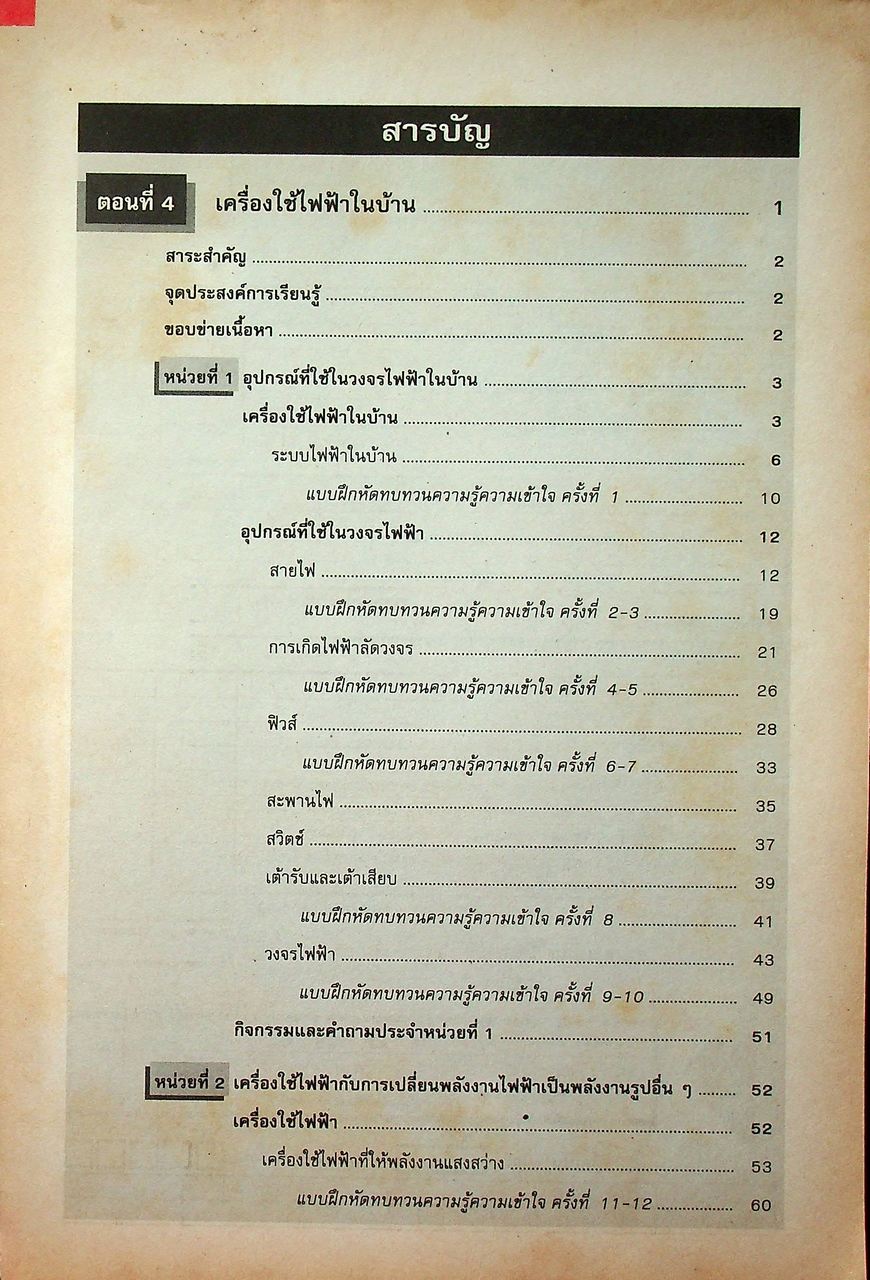 สารบัญ
ตอนที่ 4 เครื่องใช้ไฟฟ้าในบ้าน 1
สาระสำคัญ 2
จุดประสงค์การเรียนรู้ 2
ขอบข่ายเนื้อหา 2
หน่วยที่ 1 อุปกรณ์ที่ใช้ในวงจรไฟฟ้าในบ้าน 3
เครื่องใช้ไฟฟ้าในบ้าน 3
ระบบไฟฟ้าในบ้าน 6
แบบฝึกหัดทบทวนความรู้ความเข้าใจ ครั้งที่ 1 10
อุปกรณ์ที่ใช้ในวงจรไฟฟ้า 12
สายไฟ 12
แบบฝึกหัดทบทวนความรู้ความเข้าใจ ครั้งที่ 2-3 19
การเกิดไฟฟ้าลัดวงจร 21
แบบฝึกหัดทบทวนความรู้ความเข้าใจ ครั้งที่ 4-5 26
ฟิวส์ 28
แบบฝึกหัดทบทวนความรู้ความเข้าใจ ครั้งที่ 6-7 33
สะพานไฟ 35
สวิตช์ 37
เต้ารับและเต้าเสียบ 39
แบบฝึกหัดทบทวนความรู้ความเข้าใจ ครั้งที่ 8 41
วงจรไฟฟ้า 43
แบบฝึกหัดทบทวนความรู้ความเข้าใจ ครั้งที่ 9-10 49
กิจกรรมและคำถามประจำหน่วยที่ 1 51
หน่วยที่ 2 เครื่องใช้ไฟฟ้ากับการเปลี่ยนพลังงานไฟฟ้าเป็นพลังงานรูปอื่น ๆ 52
เครื่องใช้ไฟฟ้า 52
เครื่องใช้ไฟฟ้าที่ให้พลังงานแสงสว่าง 53
แบบฝึกหัดทบทวนความรู้ความเข้าใจ ครั้งที่ 11-12 60